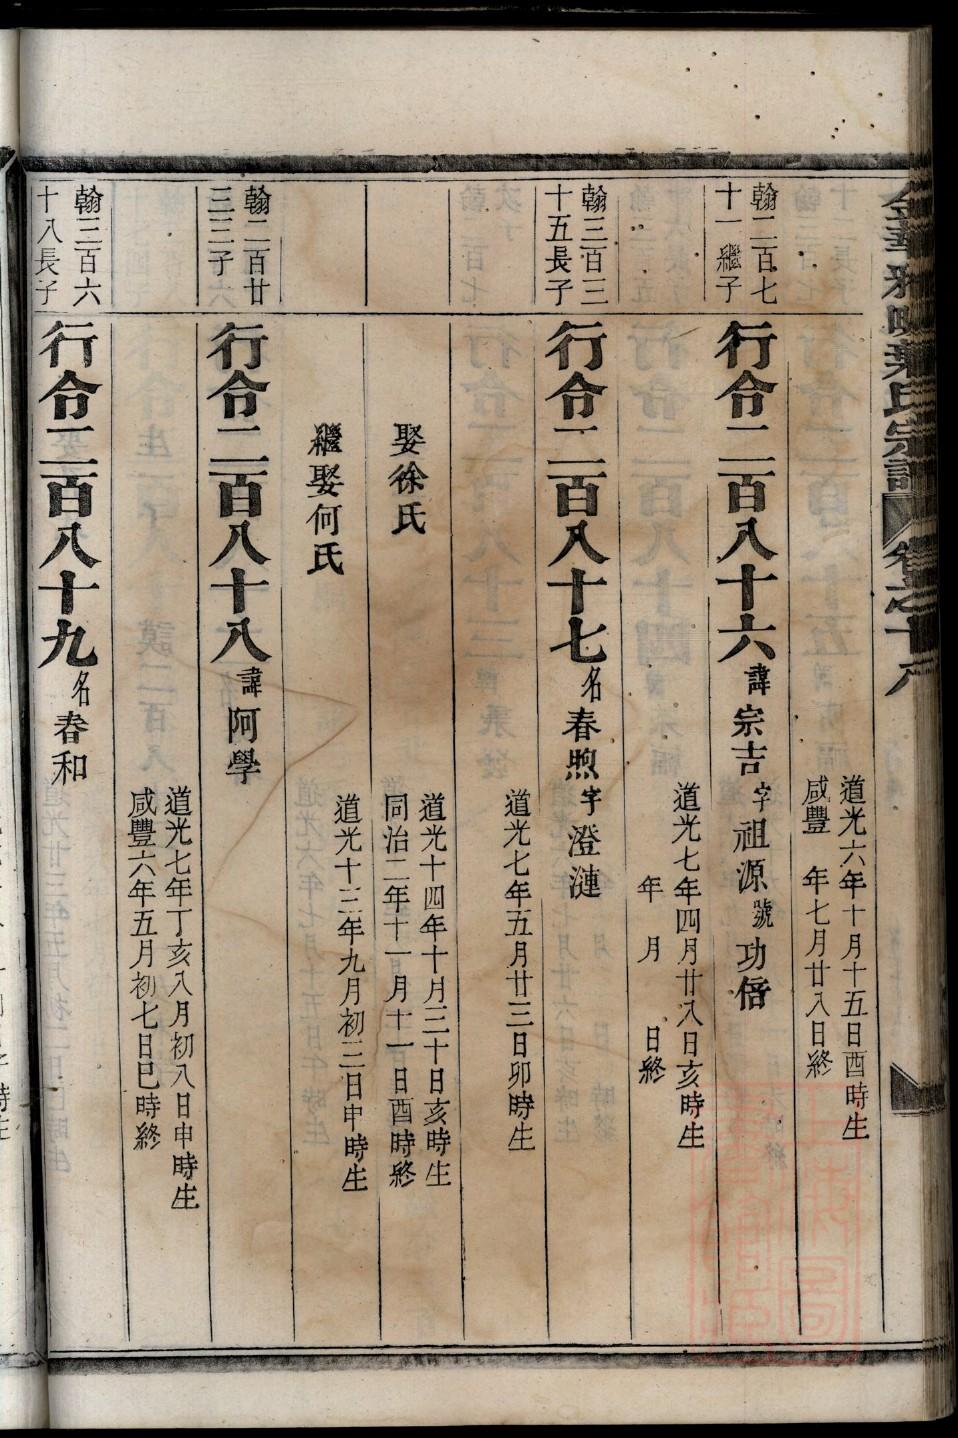 道光六年十月十五日酉時生
咸豐　年七月廿八日終
翰二百七
十一繼子
行令二百八十六諱宗吉字祖源號功偣
道光七年四月廿八日亥時生
年　月　日終
翰三百三
十五長子
行令二百八十七名春煦字澄漣
道光七年五月廿三日卯時生
娶徐氏
道光十四年十月三十日亥時生
同治二年十一月十一日酉時終
繼娶何氏
道光十三年九月初三日申時生
翰二百廿
三三子
行令二百八十八諱阿學
道光七年丁亥八月初八日申時生
咸豐六年五月初七日巳時終
翰三百六
十八長子
行令二百八十九名春和